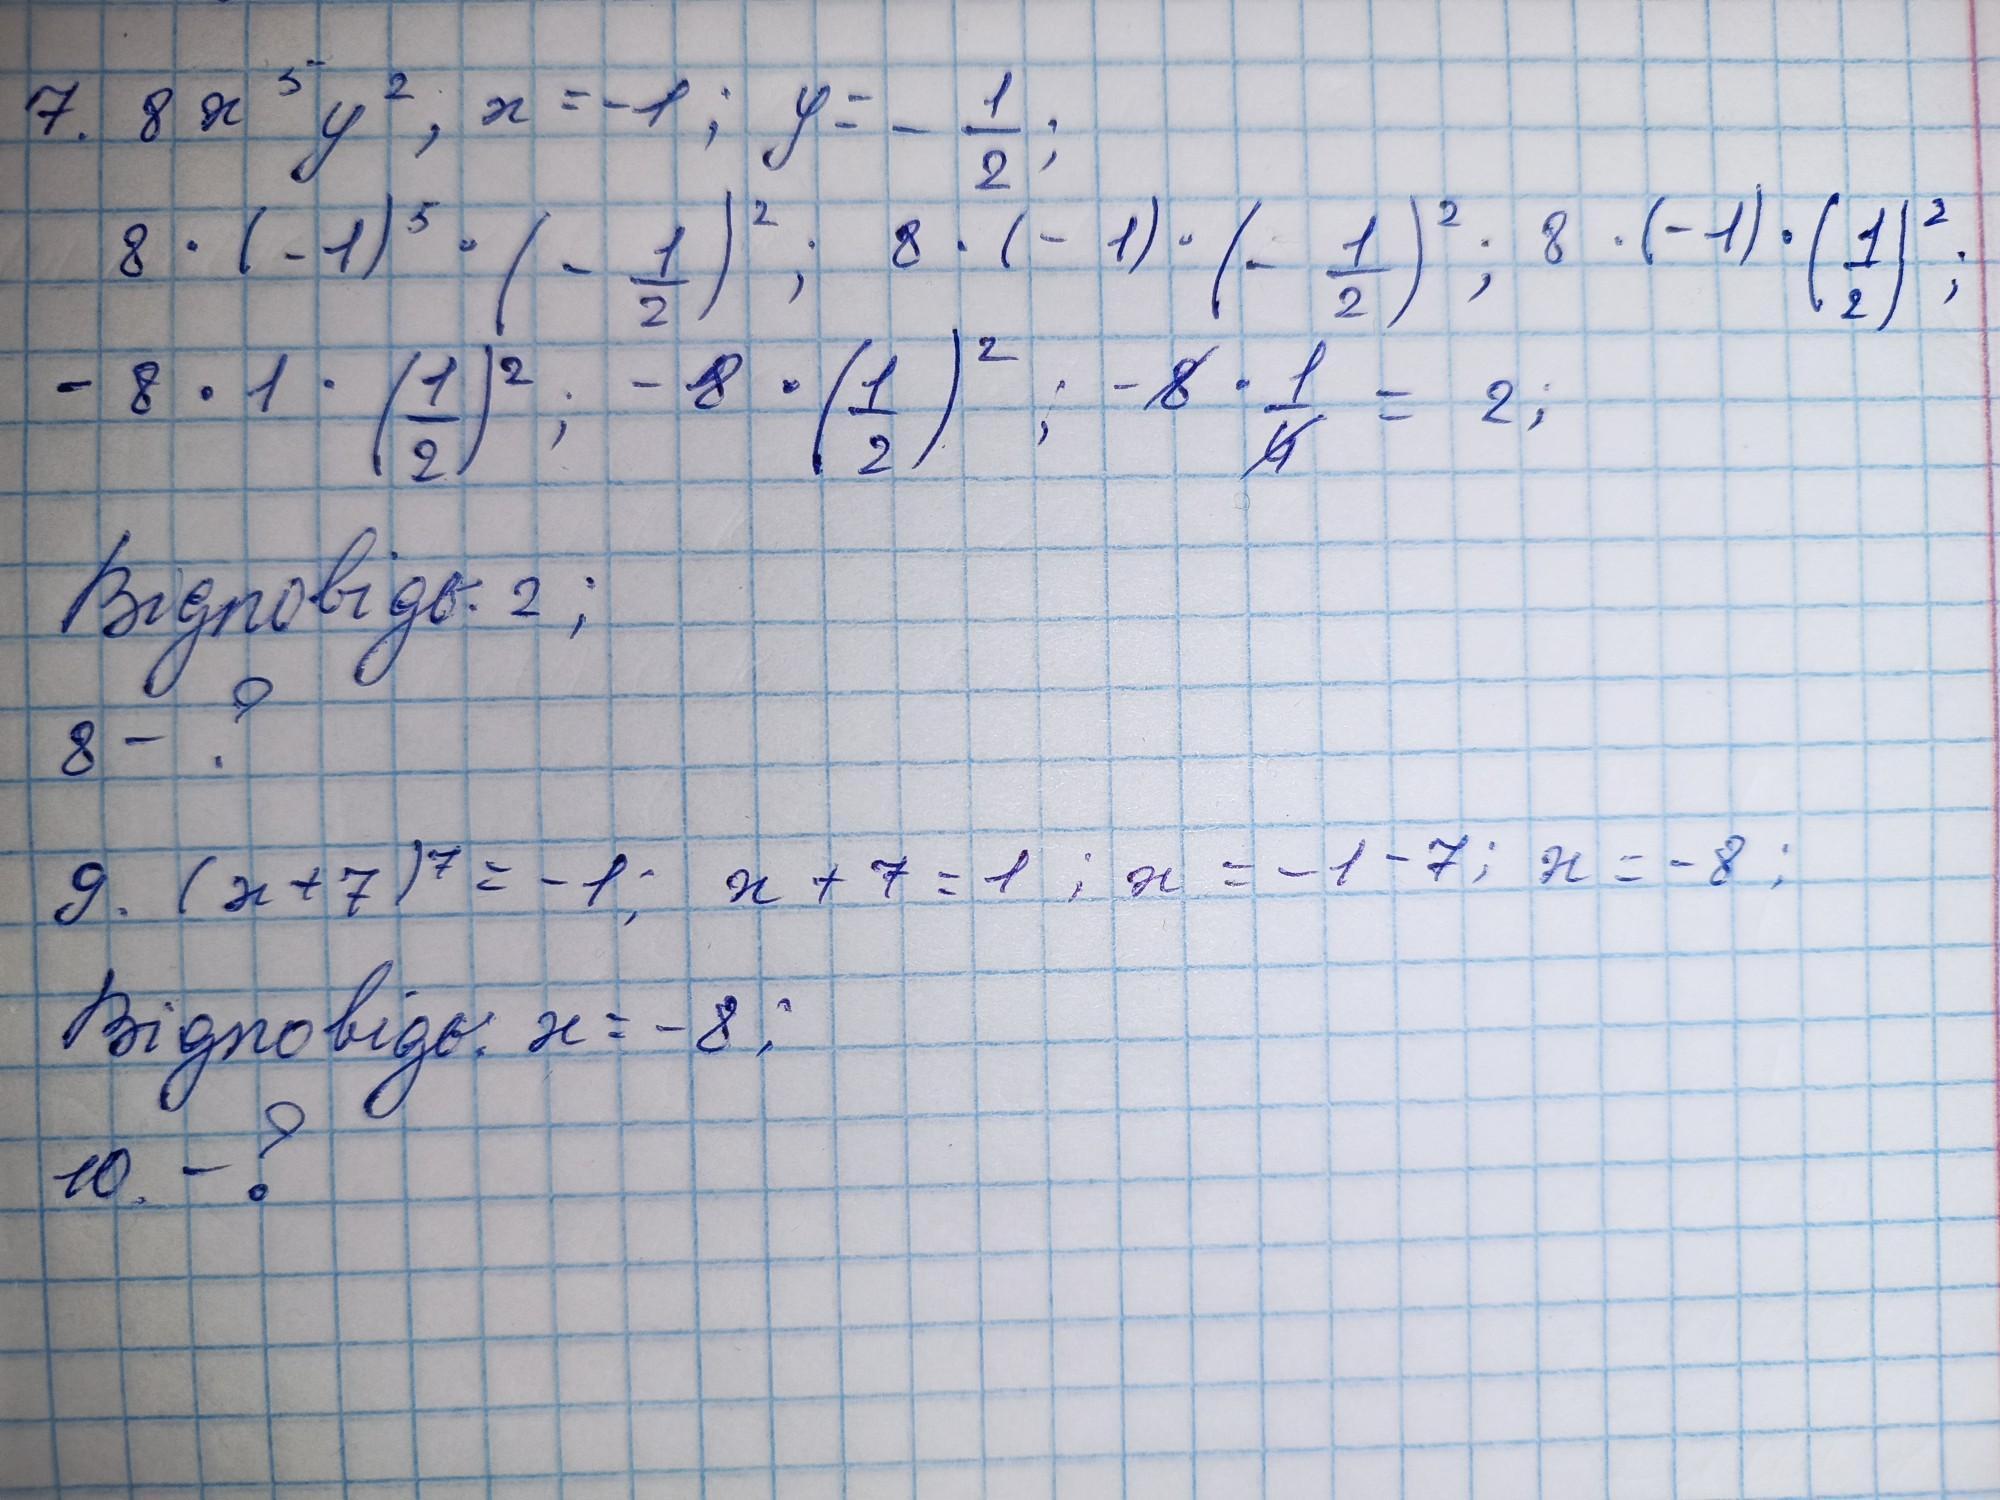 7. 8x⁵y², x = -1; y = - 1/2;
8 · (-1)⁵ · (- 1/2)²; 8 · (- 1) · (- 1/2)²; 8 · (-1) · (1/2)²;
- 8 · 1 · (1/2)²; - 8 · (1/2)²; - 8 · 1/4 = 2;
Відповідь: 2;
8 - ?
9. (x+7)⁷ = -1; x + 7 = 1; x = -1 - 7; x = -8;
Відповідь: x = -8;
10. - ?